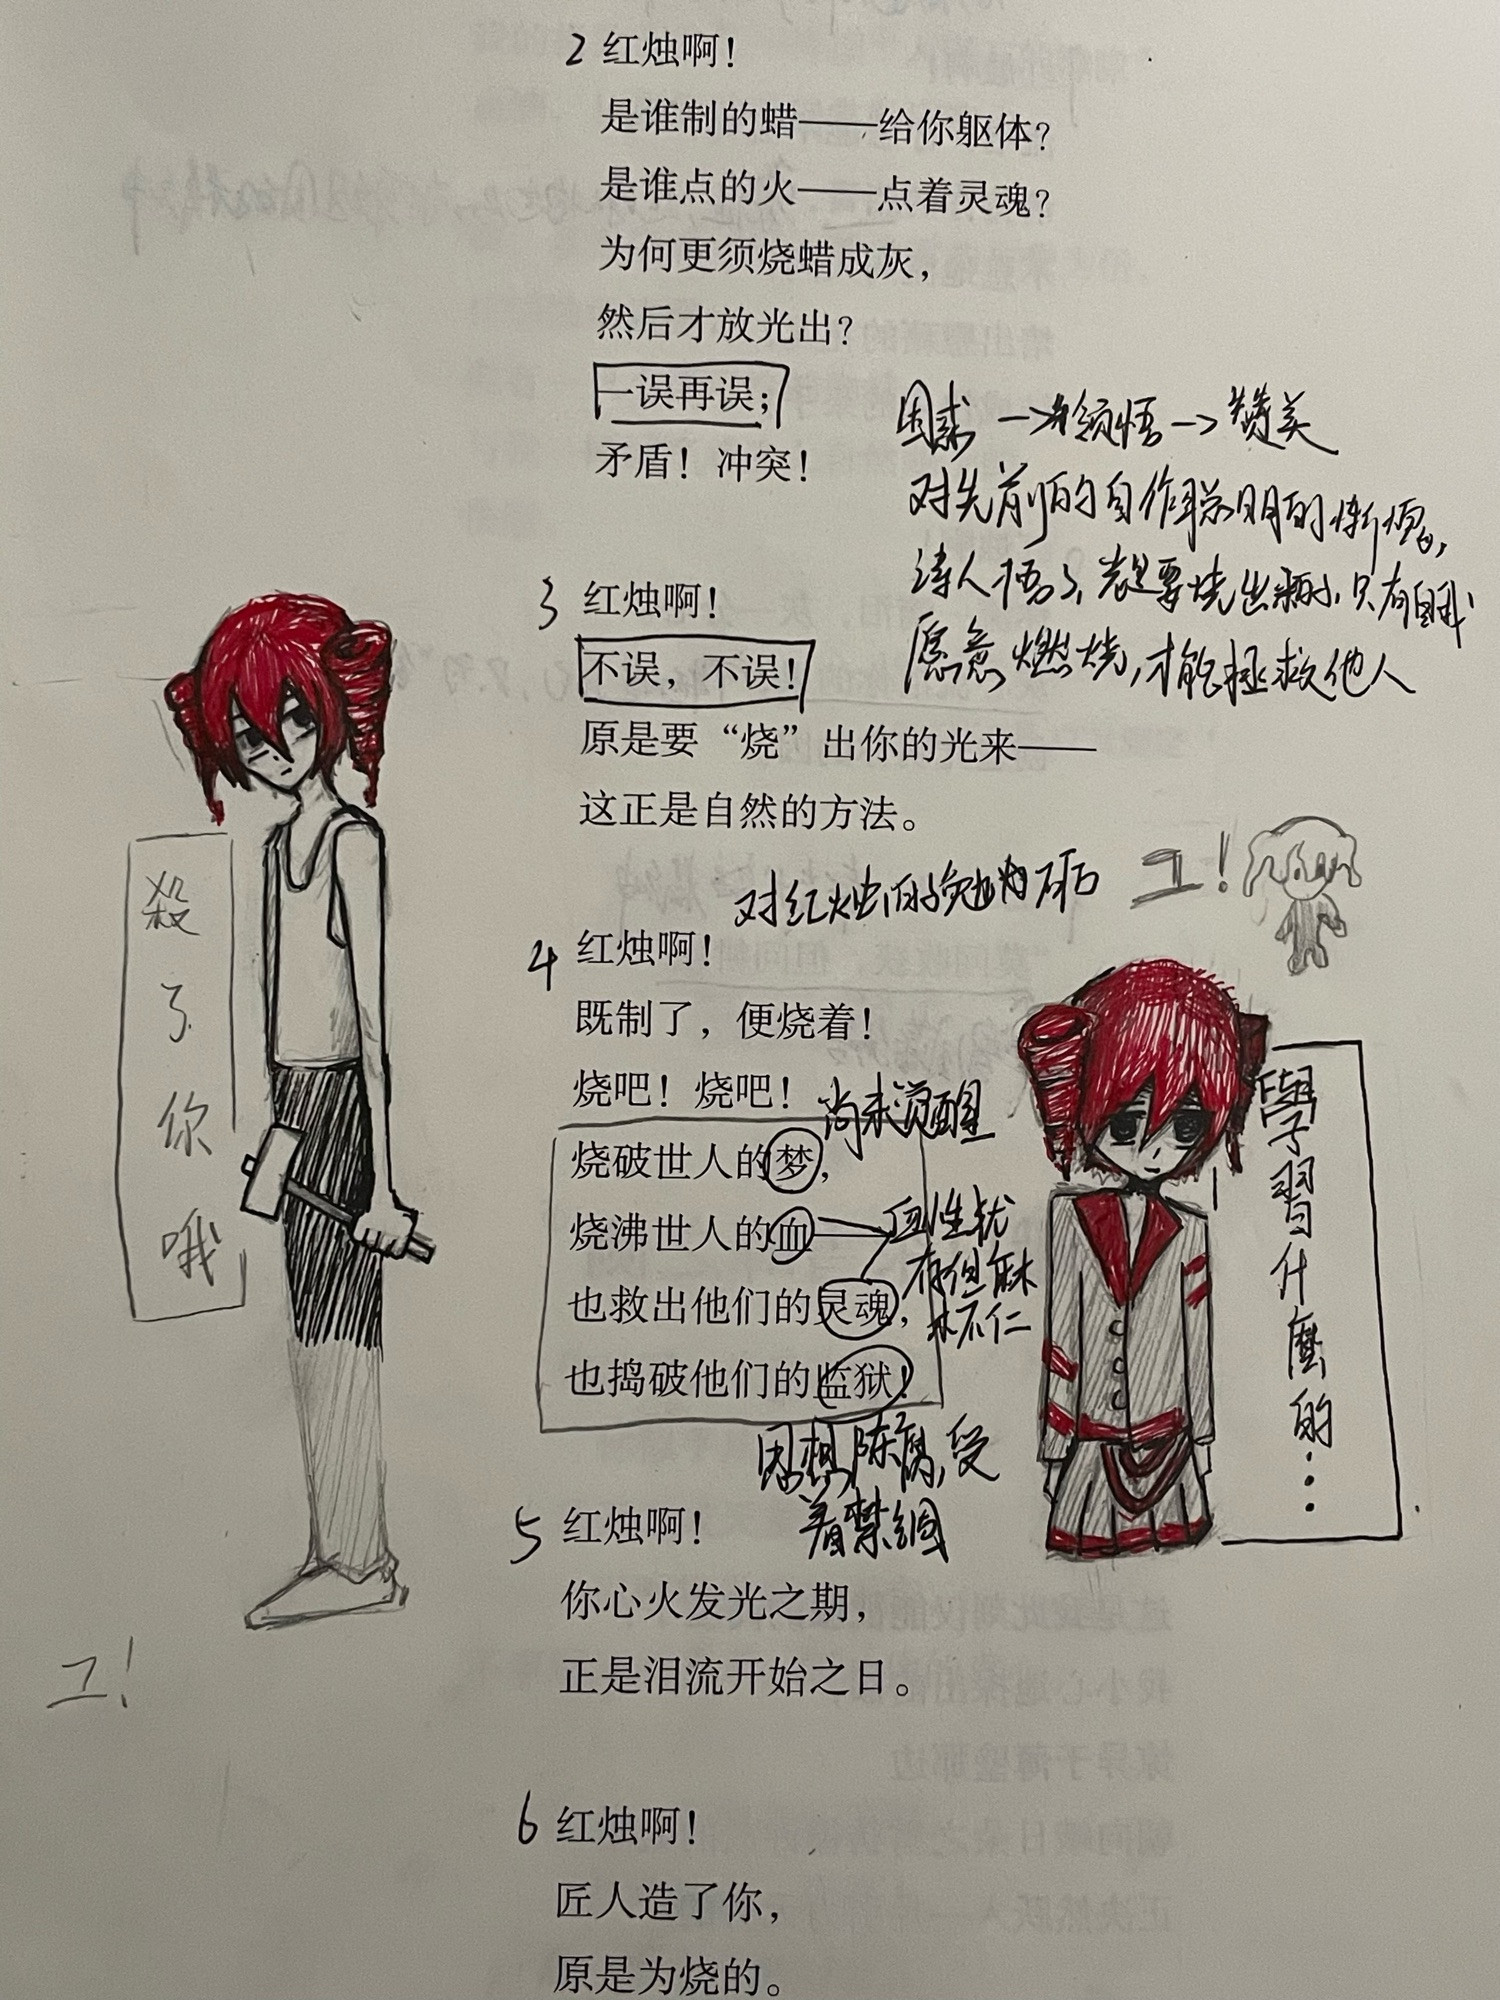 2 红烛啊！
是谁制的蜡——给你躯体？
是谁点的火——点着灵魂？
为何更须烧蜡成灰，
然后才放光出？
一误再误；
矛盾！冲突！
困惑→领悟→赞美
对先前的自作聪明的惭愧，
诗人悟了，光是要烧出来的，只有自我
愿意燃烧，才能拯救他人
3 红烛啊！
不误，不误！
原是要“烧”出你的光来——
这正是自然的方法。
对红烛的勉励
ユ！
4 红烛啊！
既制了，便烧着！
烧吧！烧吧！
尚未觉醒
烧破世人的梦，
烧沸世人的血
血性犹
存但麻
木不仁
也救出他们的灵魂，
也捣破他们的监狱！
思想陈腐，受
着禁锢
5 红烛啊！
你心火发光之期，
正是泪流开始之日。
6 红烛啊！
匠人造了你，
原是为烧的。
殺了你哦
ユ！
學習什麼的…